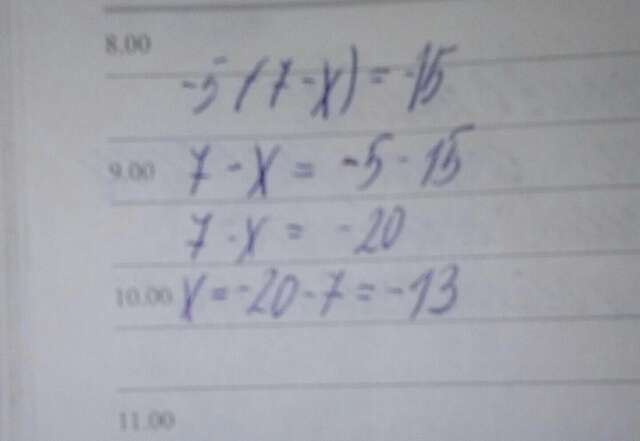 8.00
-5(7-x)=-15
9.00 7-x=-5-15
7-x=-20
10.00 x=-20-7=-13
11.00